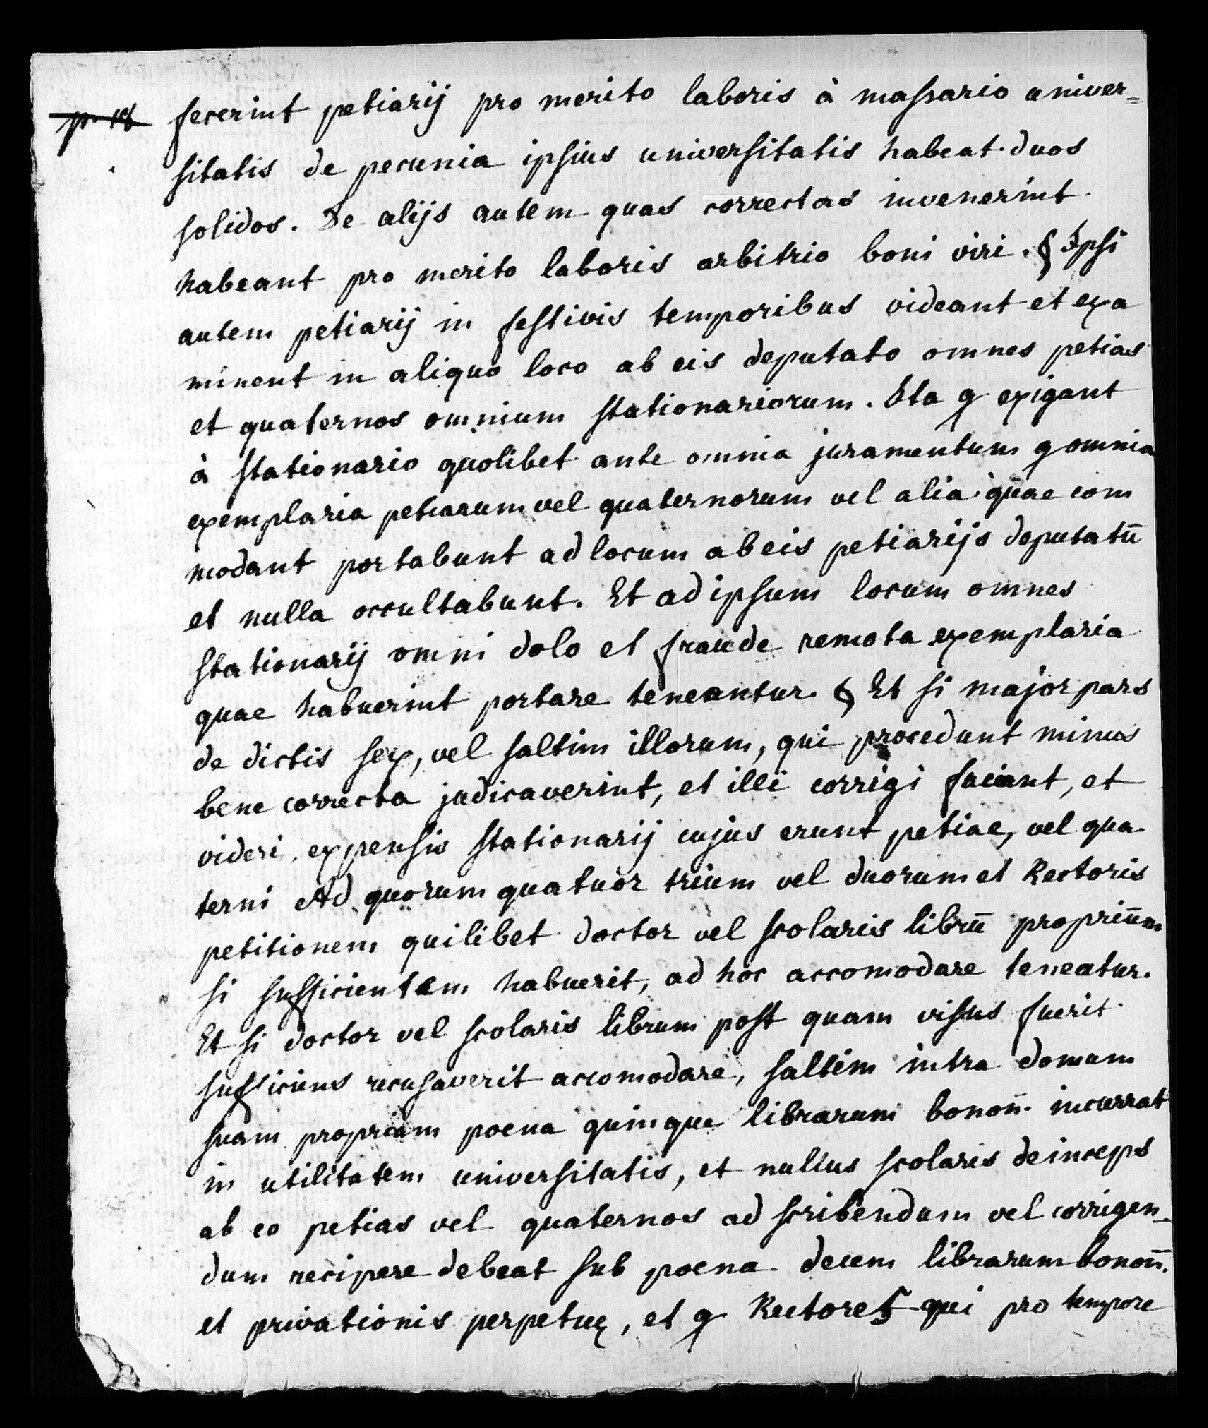 p. 18 fecerint petiarij pro merito laboris à massario univer=
sitatis de pecunia ipsius universitatis habeat duos
solidos. De alijs autem quas correctas invenerint
habeant pro merito laboris arbitrio boni viri. § Ipsi
autem petiarij in festivis temporibus videant et exa
minent in aliquo loco ab eis deputato omnes petias
et quaternos omnium stationariorum. Ita q exigant
à stationario quolibet ante omnia juramentum q omnia
exemplaria petiarum vel quaternorum vel alia quae com
modant portabunt ad locum ab eis petiarijs deputatū
et nulla occultabunt. Et ad ipsum locum omnes
stationarij omni dolo et fraude remota exemplaria
quae habuerint portare teneantur. § Et si major pars
de dictis sex, vel saltim illorum, qui procedunt minus
bene correcta judicaverint, et illi corrigi faciant, et
videri expensis stationarij cujus erunt petiae, vel qua
terni Ad quorum quatuor trium vel duorum et Rectoris
petitionem quilibet doctor vel scolaris librū propriūm
si sufficientem habuerit, ad hoc accomodare teneatur.
Et si doctor vel scolaris librum post quam visus fuerit
sufficiens recusaverit accomodare, saltim intra domum
suam propriam poena quinque librarum bonon̄. incurrat
in utilitatem universitatis, et nullus scolaris deinceps
ab eo petias vel quaternos ad scribendum vel corrigen_
dum recipere debeat sub poena decem librarum bonon̄.
et privationis perpetuę, et q Rectores qui pro tempore